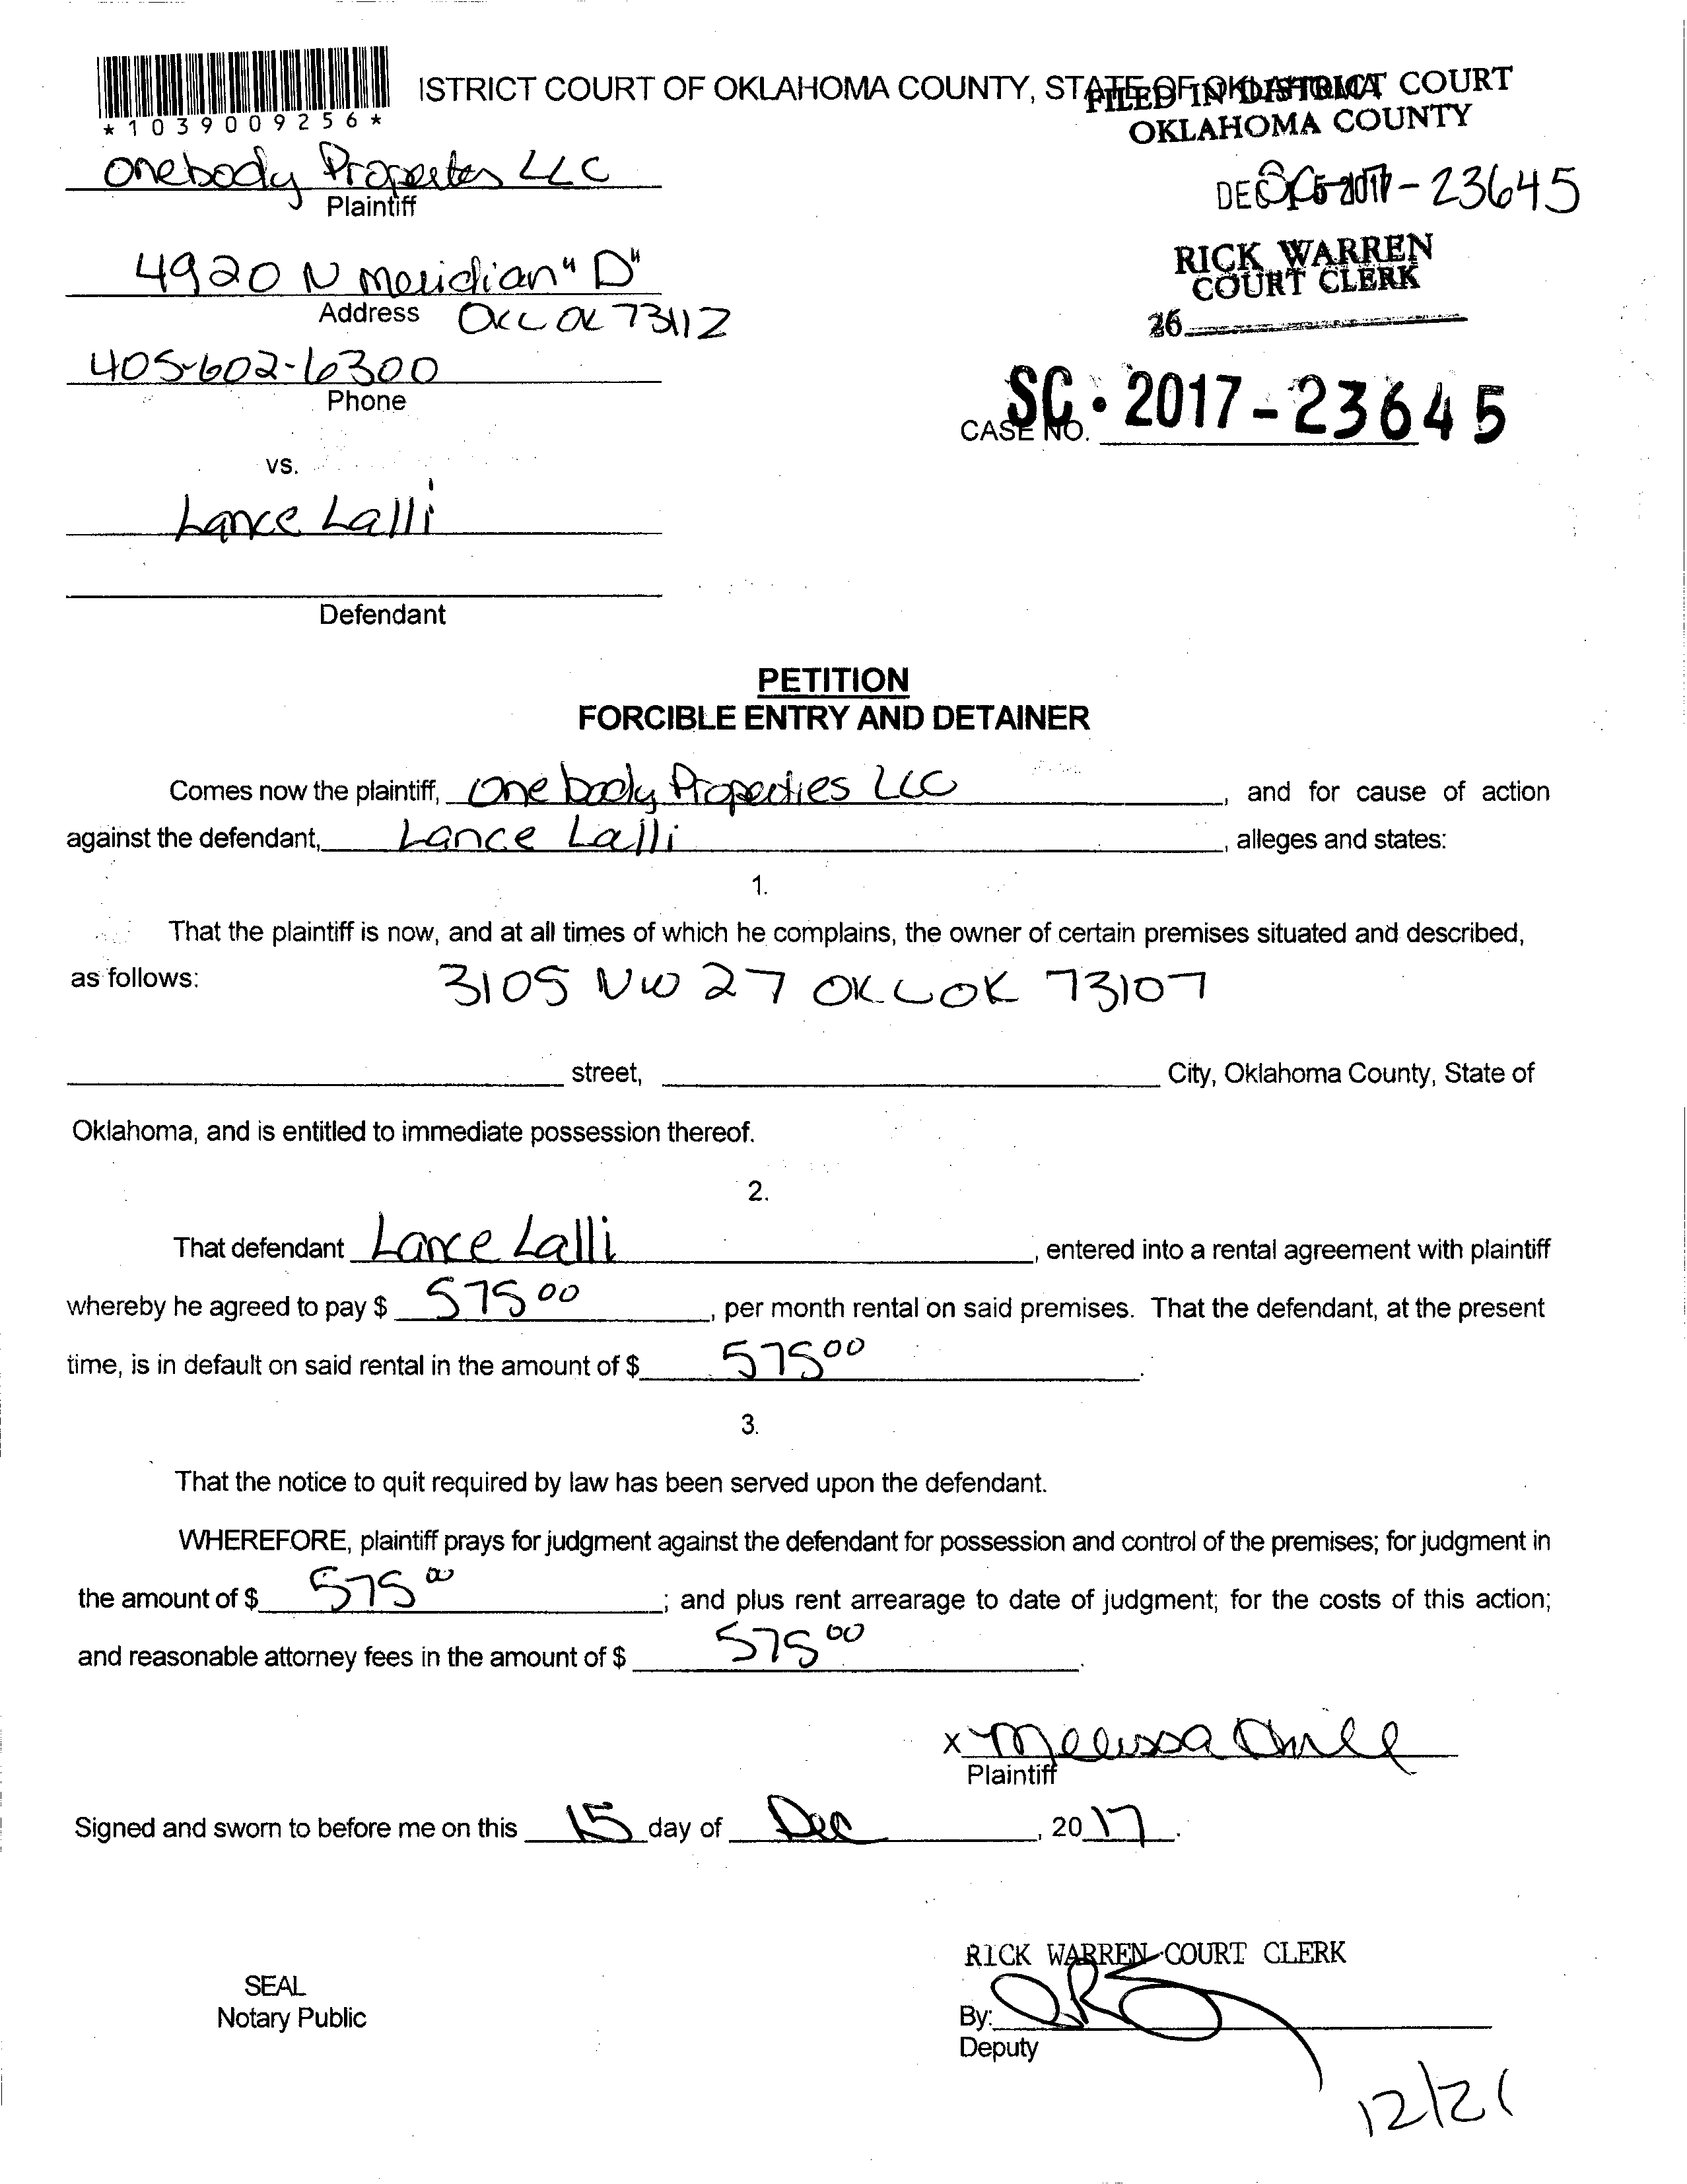 ISTRICT COURT OF OKLAHOMA COUNTY, STATE OF OKLAHOMA
FILED IN DISTRICT COURT
OKLAHOMA COUNTY
*1039009256*
Onebody Properties LLC
Plaintiff
DEC 15 2017
SC-2017-23645
4920 N Meridian "D"
Address OKC OK 73112
RICK WARREN
COURT CLERK
26
405-602-6300
Phone
CASE NO. SC-2017-23645
vs.
Lance Lalli
Defendant
PETITION
FORCIBLE ENTRY AND DETAINER
Comes now the plaintiff, One body Properties LLC, and for cause of action
against the defendant, Lance Lalli, alleges and states:
1.
That the plaintiff is now, and at all times of which he complains, the owner of certain premises situated and described,
as follows: 3105 NW 27 OKC OK 73107
street, City, Oklahoma County, State of
Oklahoma, and is entitled to immediate possession thereof.
2.
That defendant Lance Lalli, entered into a rental agreement with plaintiff
whereby he agreed to pay $ 575 00, per month rental on said premises. That the defendant, at the present
time, is in default on said rental in the amount of $ 575 00.
3.
That the notice to quit required by law has been served upon the defendant.
WHEREFORE, plaintiff prays for judgment against the defendant for possession and control of the premises; for judgment in
the amount of $ 575 00; and plus rent arrearage to date of judgment; for the costs of this action;
and reasonable attorney fees in the amount of $ 575 00.
x Melissa
Plaintiff
Signed and sworn to before me on this 15 day of Dec, 2017.
RICK WARREN COURT CLERK
SEAL
Notary Public
By:
Deputy
12/21